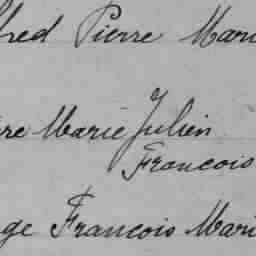 fred Pierre Mari
re Marie Julien
Francois
ge Francois Mari